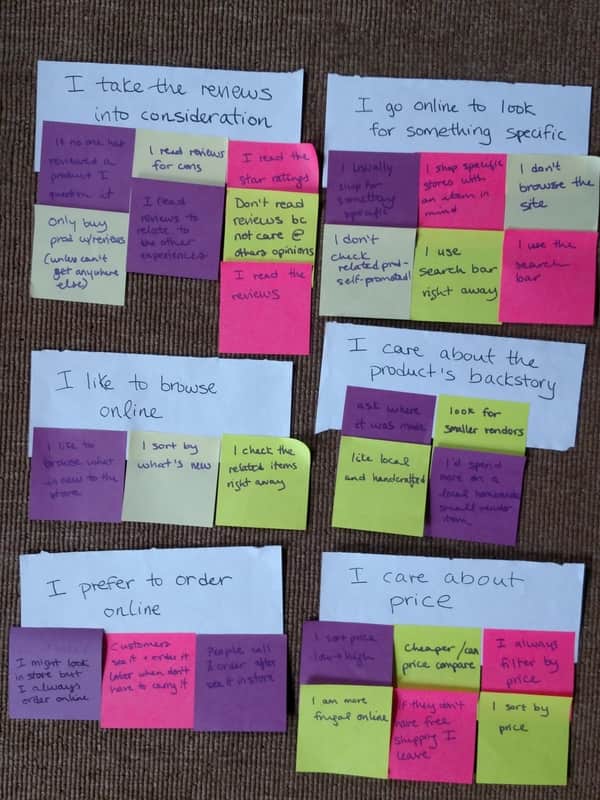 I take the reviews
into consideration
If no one has
reviewed a
product I
question it
I read reviews
for cons
I read the
star ratings
Only buy
prod w/reviews
(unless can't
get anywhere
else)
I read
reviews to
relate to
the other
experiences
Don't read
reviews bc
not care @
others opinions
I read the
reviews
I go online to look
for something specific
I usually
shop for
something
specific
I shop specific
stores with
an item in
mind
I don't
browse the
site
I don't
check
related prod-
self-promoted!
I use
search bar
right away
I use the
search
bar
I like to browse
online
I like to
browse what
is new to the
store
I sort by
what's new
I check the
related items
right away
I care about the
product's backstory
ask where
it was made
look for
smaller vendors
like local
and handcrafted
I'd spend
more on a
local homemade
small vendor
item
I prefer to order
online
I might look
in store but
I always
order online
Customers
see it + order it
later when don't
have to carry it
People call
& order after
see it in store
I care about
price
I sort price
low-high
Cheaper/can
price compare
I always
filter by
price
I am more
frugal online
If they don't
have free
shipping I
leave
I sort by
price